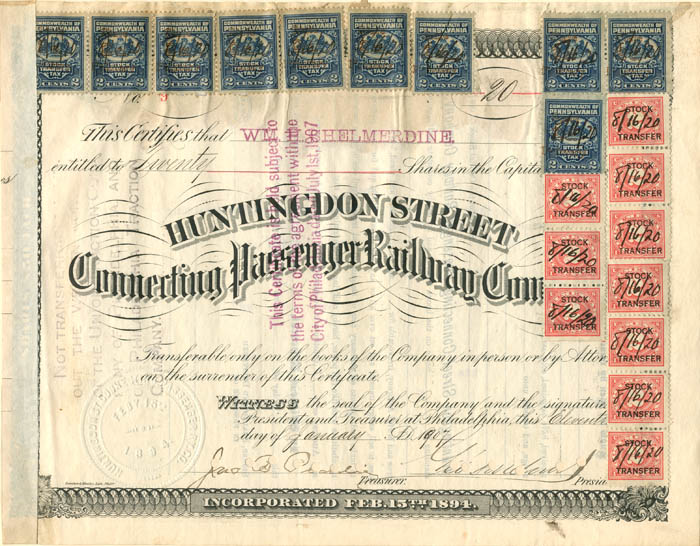 COMMONWEALTH OF PENNSYLVANIA STOCK TRANSFER TAX 2 CENTS 2
COMMONWEALTH OF PENNSYLVANIA STOCK TRANSFER TAX 2 CENTS 2
COMMONWEALTH OF PENNSYLVANIA STOCK TRANSFER TAX 2 CENTS 2
COMMONWEALTH OF PENNSYLVANIA STOCK TRANSFER TAX 2 CENTS 2
COMMONWEALTH OF PENNSYLVANIA STOCK TRANSFER TAX 2 CENTS 2
COMMONWEALTH OF PENNSYLVANIA STOCK TRANSFER TAX 2 CENTS 2
COMMONWEALTH OF PENNSYLVANIA STOCK TRANSFER TAX 2 CENTS 2
COMMONWEALTH OF PENNSYLVANIA STOCK TRANSFER TAX 2 CENTS 2
COMMONWEALTH OF PENNSYLVANIA STOCK TRANSFER TAX 2 CENTS 2
20
This Certifies that WM. SHELMERDINE,
entitled to Twenty Shares in the Capita
HUNTINGDON STREET
Connecting Passenger Railway Com
Transferable only on the books of the Company in person or by Attor
on the surrender of this Certificate.
WITNESS the seal of the Company and the signature
President and Treasurer at Philadelphia, this Eleventh
day of January A.D. 1907
Treasurer. Presid
INCORPORATED FEB. 15TH 1894.
This Certificate is held subject to
the terms of the agreement with the
City of Philadelphia dated July 1st, 1907
NOT TRANSF
OUT THE
THE
COMPANY.
1894
COMMONWEALTH OF PENNSYLVANIA STOCK TRANSFER TAX 2 CENTS 2
STOCK 8/16/20 TRANSFER
STOCK 8/16/20 TRANSFER
STOCK 8/16/20 TRANSFER
STOCK 8/16/20 TRANSFER
STOCK 8/16/20 TRANSFER
STOCK 8/16/20 TRANSFER
STOCK 8/16/20 TRANSFER
STOCK 8/16/20 TRANSFER
STOCK 8/16/20 TRANSFER
STOCK 8/16/20 TRANSFER